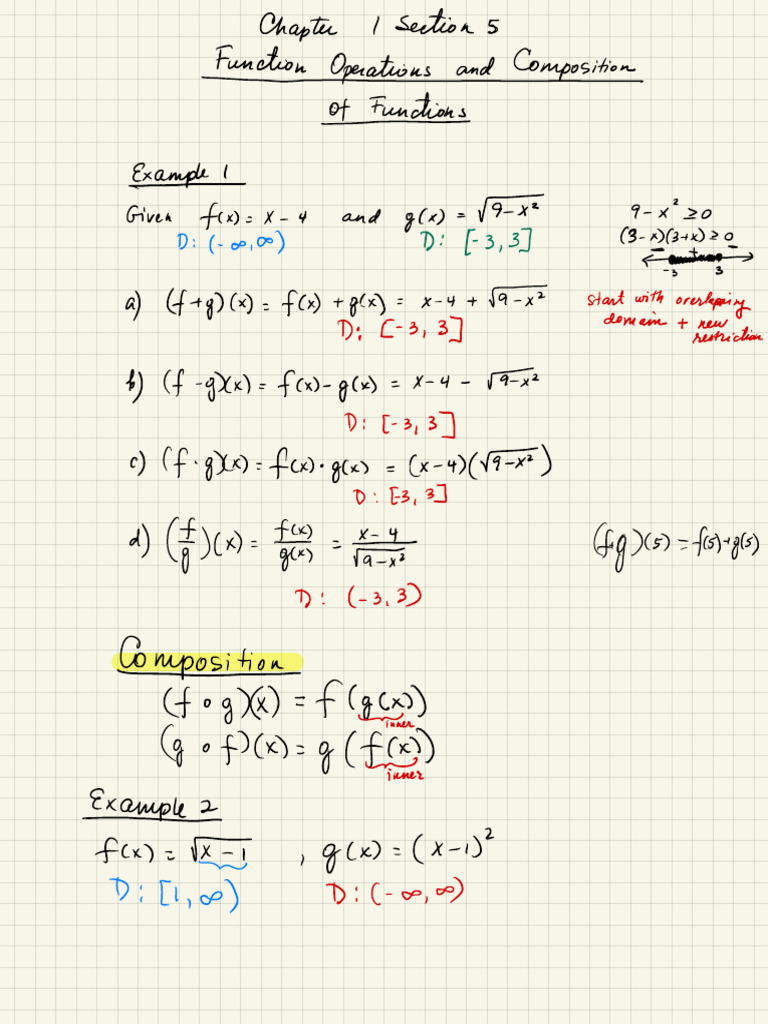 Chapter 1 Section 5
Function Operations and Composition
of Functions
Example 1
Given f(x) = x - 4 and g(x) = √(9-x²)
D: (-∞,∞) D: [-3, 3]
9 - x² ≥ 0
(3-x)(3+x) ≥ 0
- + -
-3 3
a) (f+g)(x) = f(x) + g(x) = x-4 + √(9-x²)
D: [-3, 3]
start with overlapping
domain + new
restriction
b) (f-g)(x) = f(x) - g(x) = x-4 - √(9-x²)
D: [-3, 3]
c) (f·g)(x) = f(x)·g(x) = (x-4)(√(9-x²))
D: [-3, 3]
d) (f/g)(x) = f(x)/g(x) = (x-4)/√(9-x²)
D: (-3, 3)
(f+g)(5) = f(5)+g(5)
Composition
(f∘g)(x) = f(g(x))
inner
(g∘f)(x) = g(f(x))
inner
Example 2
f(x) = √(x-1) , g(x) = (x-1)²
D: [1, ∞) D: (-∞, ∞)